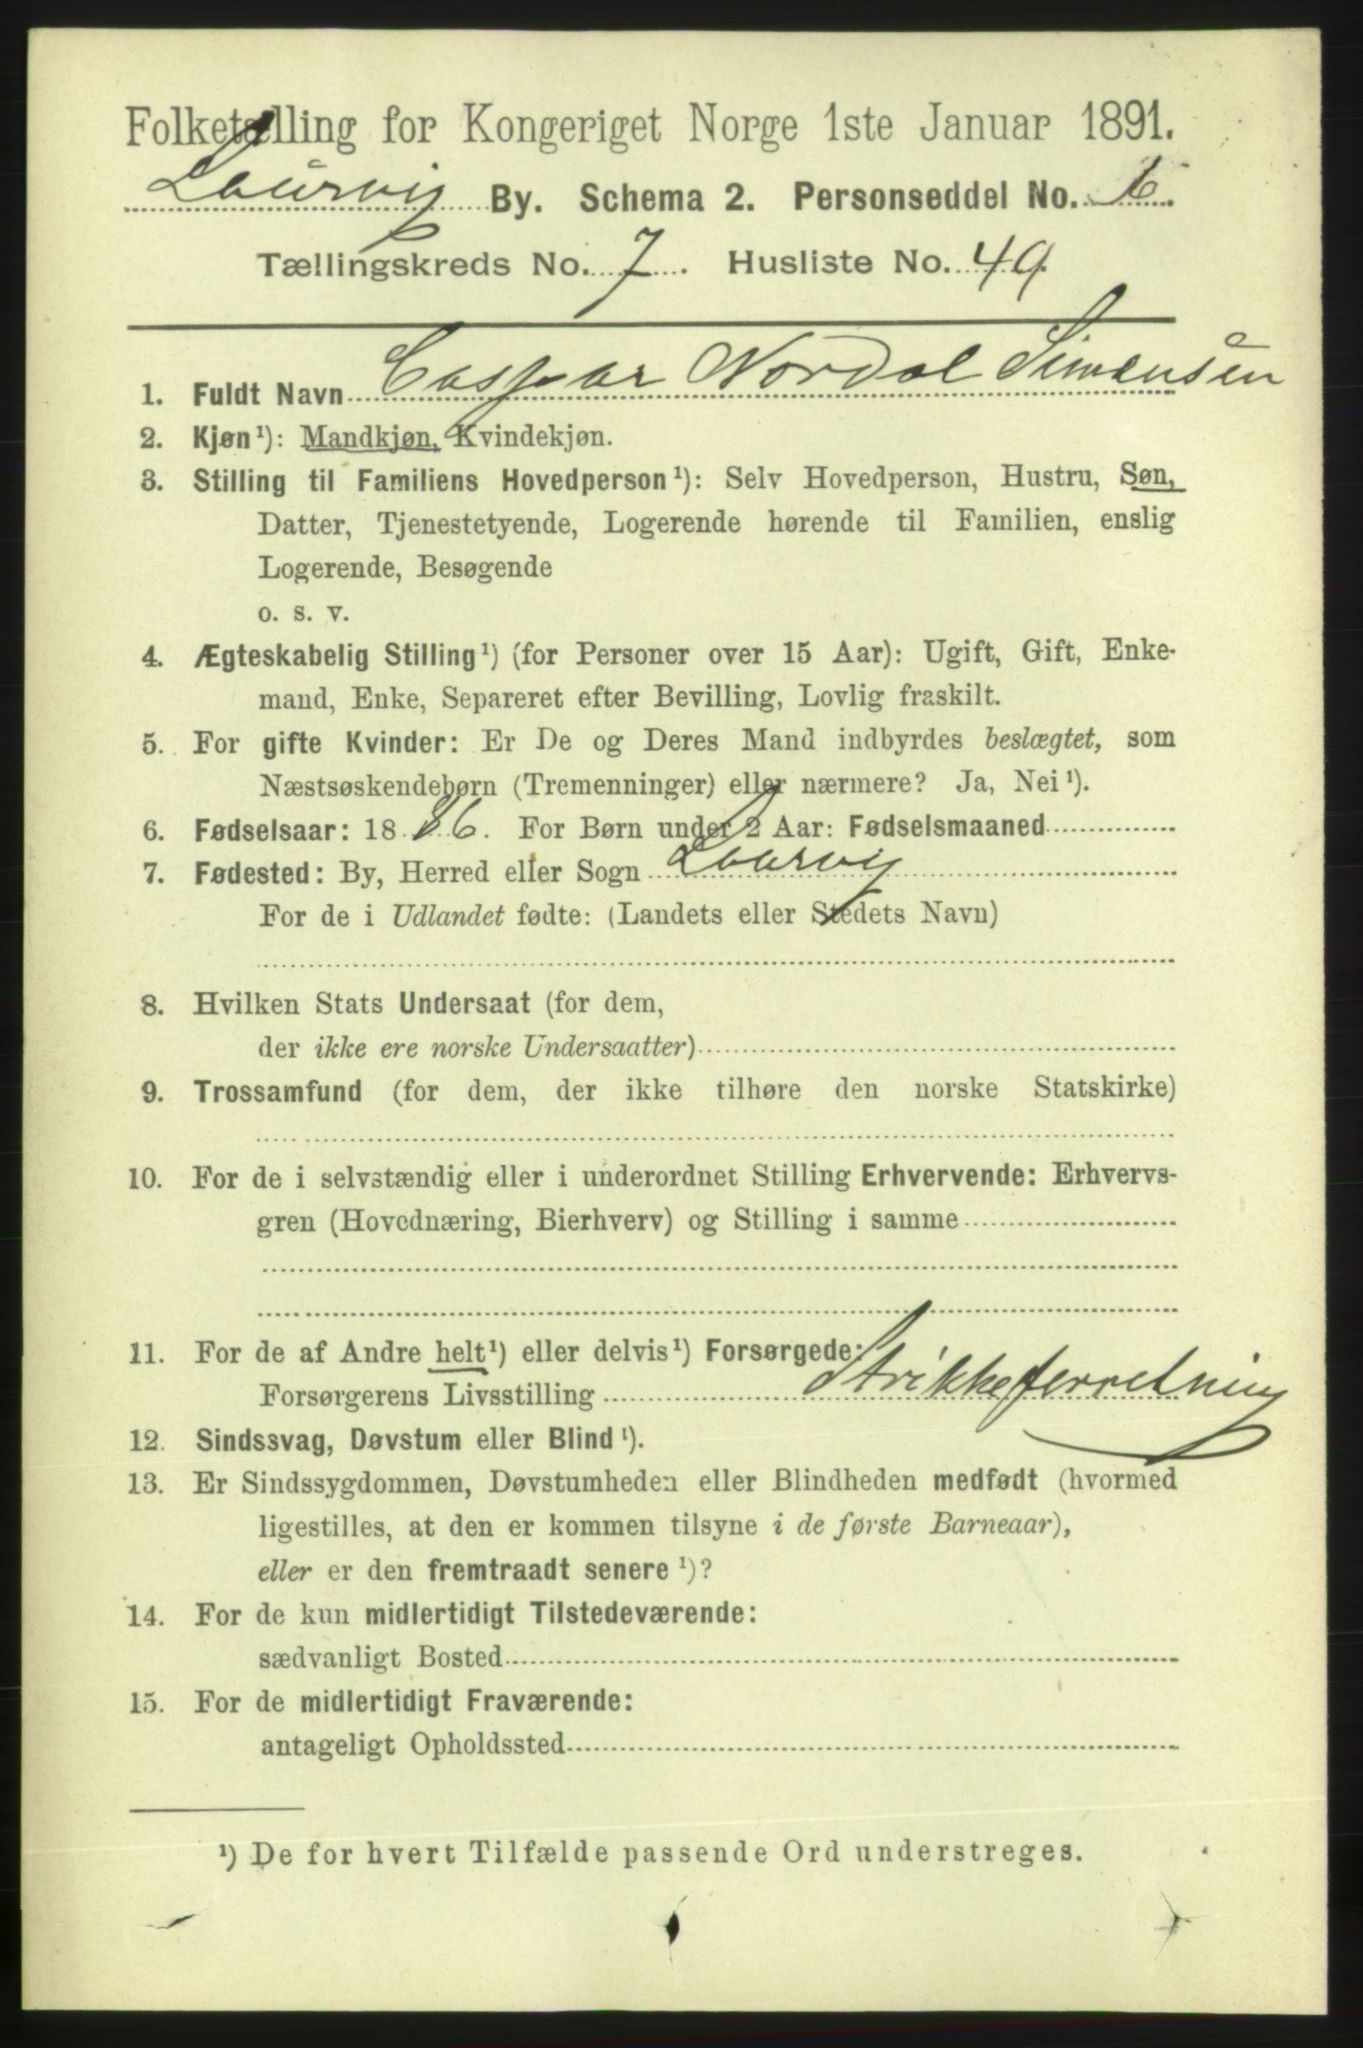 Folketælling for Kongeriget Norge 1ste Januar 1891.
Laurvig By. Schema 2. Personseddel No. 6.
Tællingskreds No. 7. Husliste No. 49.
1. Fuldt Navn Caspar Nordal Simensen
2. Kjøn¹): Mandkjøn, Kvindekjøn.
3. Stilling til Familiens Hovedperson¹): Selv Hovedperson, Hustru, Søn,
Datter, Tjenestetyende, Logerende hørende til Familien, enslig
Logerende, Besøgende
o. s. v.
4. Ægteskabelig Stilling¹) (for Personer over 15 Aar): Ugift, Gift, Enke-
mand, Enke, Separeret efter Bevilling, Lovlig fraskilt.
5. For gifte Kvinder: Er De og Deres Mand indbyrdes beslægtet, som
Næstsøskendebørn (Tremenninger) eller nærmere? Ja, Nei¹).
6. Fødselsaar: 1886. For Børn under 2 Aar: Fødselsmaaned
7. Fødested: By, Herred eller Sogn Laurvig
For de i Udlandet fødte: (Landets eller Stedets Navn)
8. Hvilken Stats Undersaat (for dem,
der ikke ere norske Undersaatter)
9. Trossamfund (for dem, der ikke tilhøre den norske Statskirke)
10. For de i selvstændig eller i underordnet Stilling Erhvervende: Erhvervs-
gren (Hovednæring, Bierhverv) og Stilling i samme
11. For de af Andre helt¹) eller delvis¹) Forsørgede:
Forsørgerens Livsstilling Strikkeforretning
12. Sindssvag, Døvstum eller Blind¹).
13. Er Sindssygdommen, Døvstumheden eller Blindheden medfødt (hvormed
ligestilles, at den er kommen tilsyne i de første Barneaar),
eller er den fremtraadt senere¹)?
14. For de kun midlertidigt Tilstedeværende:
sædvanligt Bosted
15. For de midlertidigt Fraværende:
antageligt Opholdssted
¹) De for hvert Tilfælde passende Ord understreges.